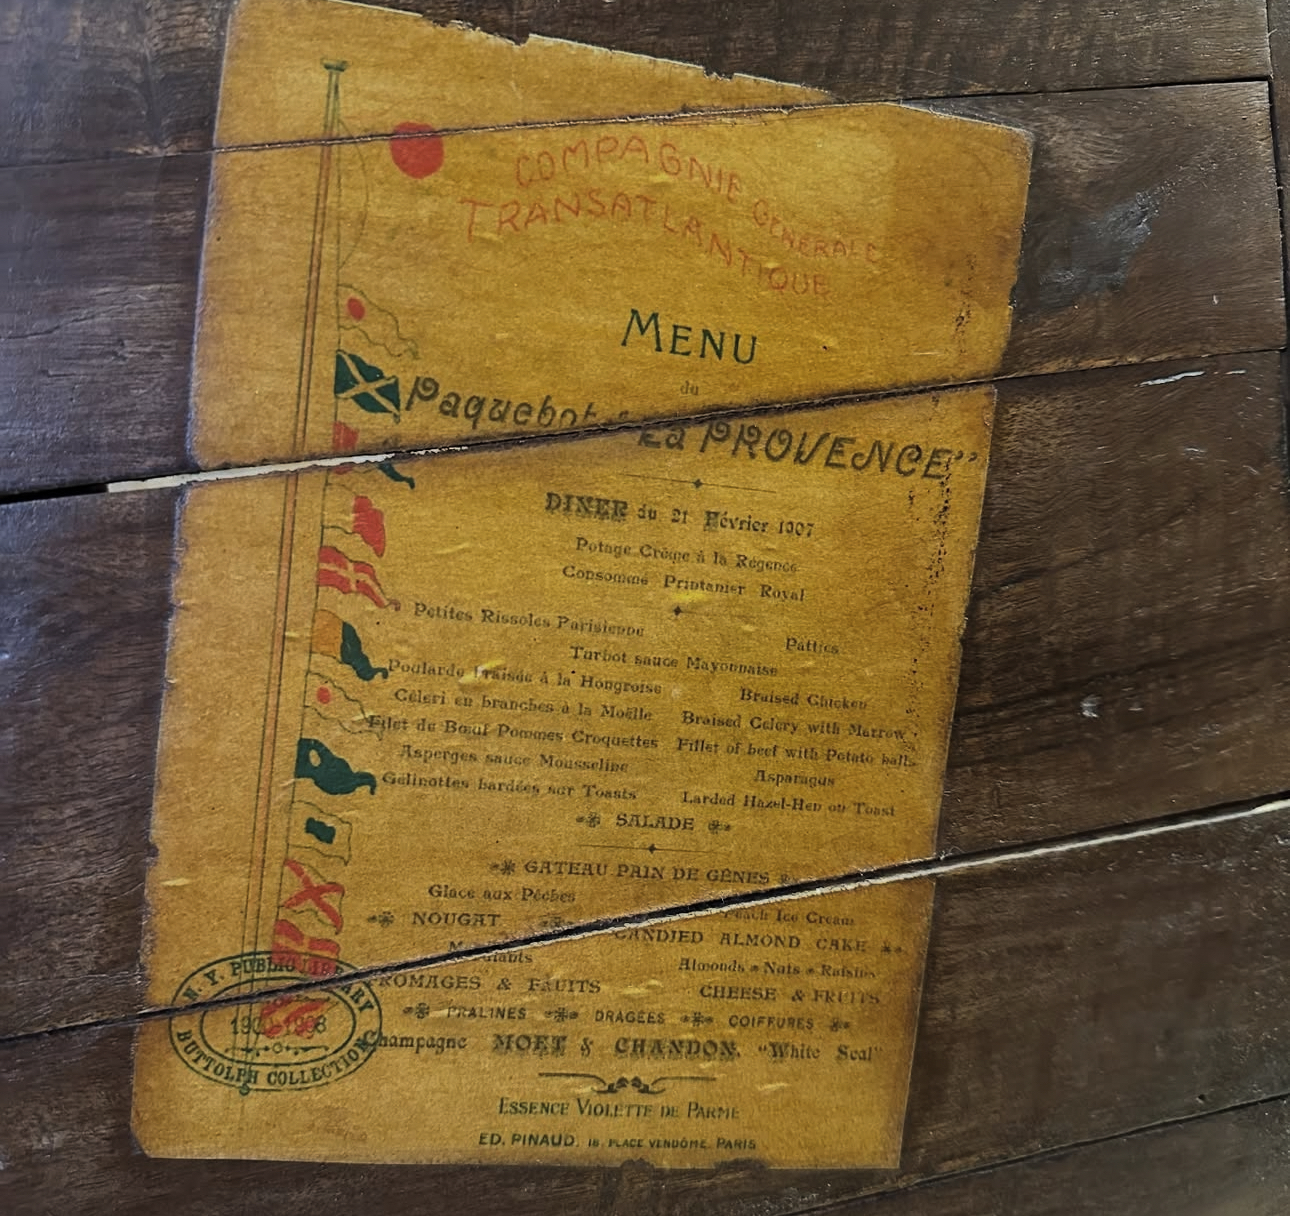 COMPAGNIE GÉNÉRALE
TRANSATLANTIQUE
MENU
du
Paquebot "La PROVENCE"
DINER du 21 Février 1907
Potage Crème à la Régence
Consommé Printanier Royal
Petites Rissoles Parisienne Patties
Turbot sauce Mayonnaise
Poularde Braisée à la Hongroise Braised Chicken
Céleri en branches à la Moëlle Braised Celery with Marrow
Filet de Bœuf Pommes Croquettes Fillet of beef with Potato balls
Asperges sauce Mousseline Asparagus
Gélinottes bardées sur Toasts Larded Hazel-Hen on Toast
SALADE
GATEAU PAIN DE GÊNES
Glace aux Pêches Peach Ice Cream
NOUGAT CANDIED ALMOND CAKE
Almonds * Nuts * Raisins
FROMAGES & FRUITS CHEESE & FRUITS
PRALINES DRAGÉES COIFFURES
Champagne MOET & CHANDON, "White Seal"
ESSENCE VIOLETTE DE PARME
ED. PINAUD, 18, PLACE VENDÔME, PARIS
N. Y. PUBLIC LIBRARY
BUTTOLPH COLLECTION